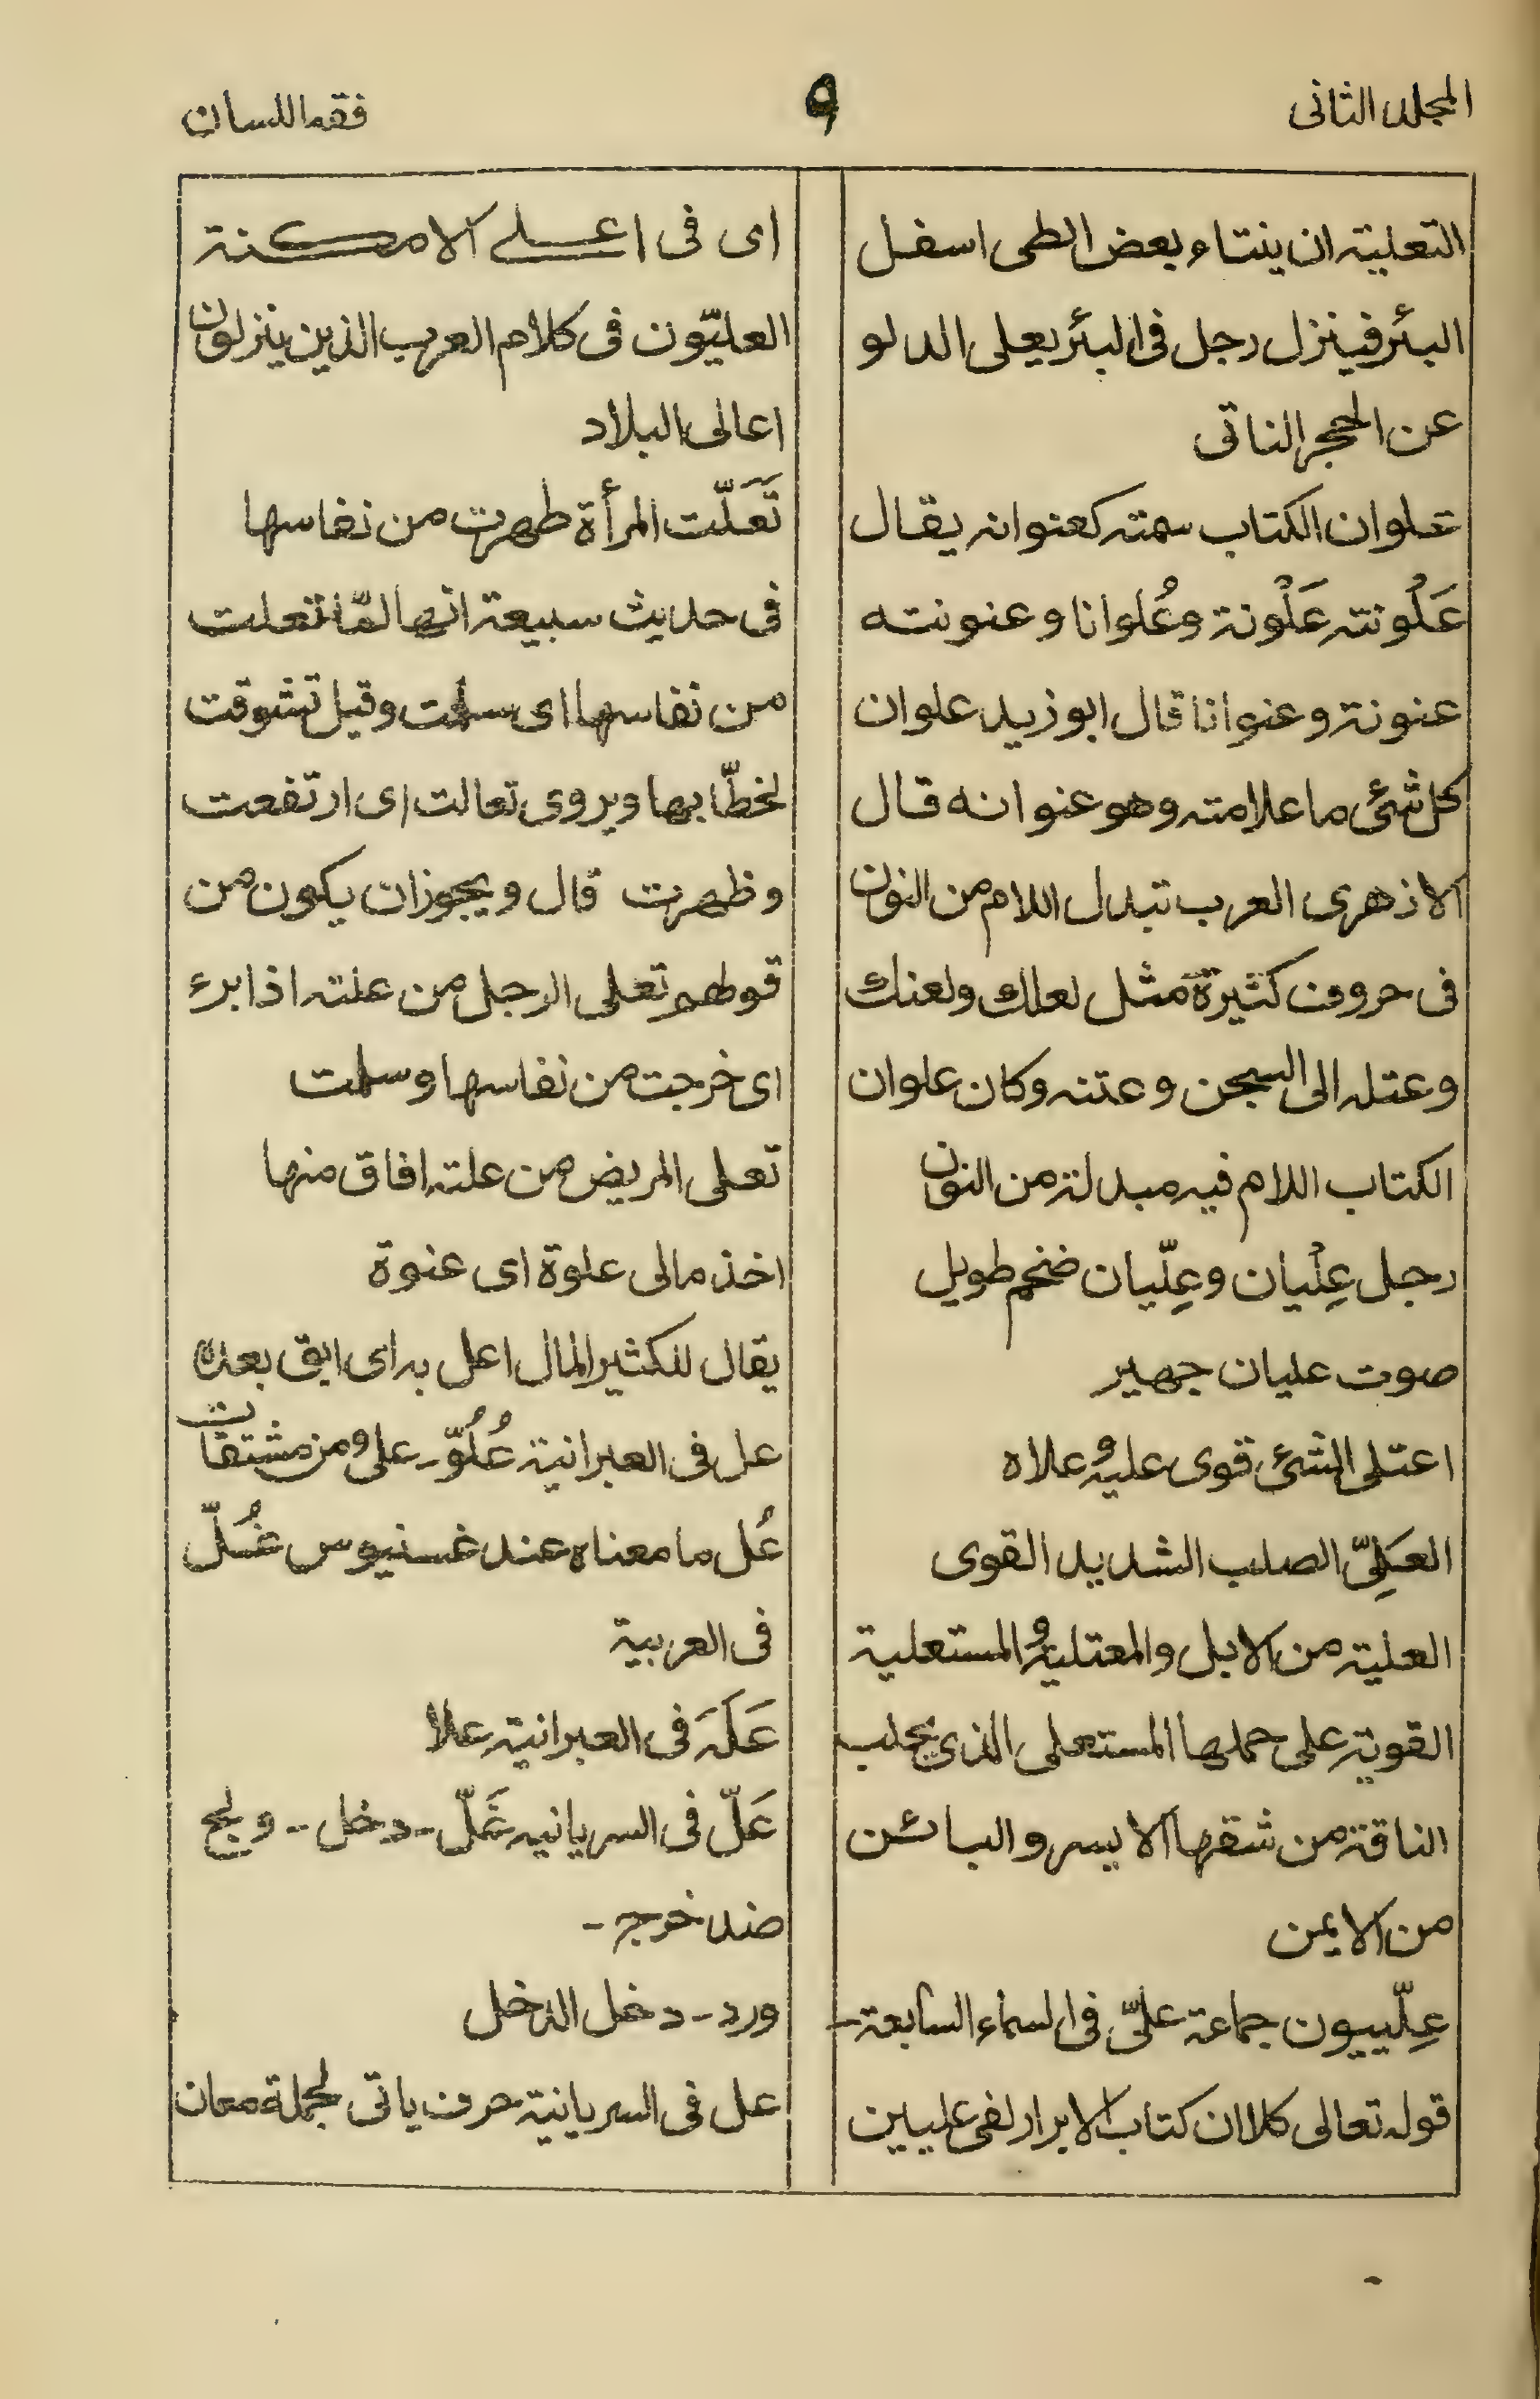 المجلد الثانى
٩
فقه اللسان
التعلية ان ينتاء بعض الطى اسفل
البئر فينزل رجل فى البئر يعلى الدلو
عن الحجر الناتى
علوان الكتاب سمته كعنوانه يقال
عَلْونته عَلْونة وعُلوانا وعنونته
عنونة وعنوانا قال ابوزيد علوان
كل شئ ما علامته وهو عنوانه قال
الازهرى العرب تبدل اللام من النون
فى حروف كثيرة مثل لعلك ولعنك
وعتله الى السجن وعتنه وكان علوان
الكتاب اللام فيه مبدلة من النون
رجل عِلْيان وعِلّيان ضخم طويل
صوت عليان جهير
اعتلى الشئ قوى عليه وعلاه
العَلِىّ الصلب الشديد القوى
العلية من الابل والمعتلية والمستعلية
القوية على حملها المستعلى الذى يحلب
الناقة من شقها الايسر والبائن
من الايمن
عِلّييون جماعة علىّ فى السماء السابعة-
قوله تعالى كلا ان كتاب الابرار لفى عليين
اى فى اعلى الامكنة
العليّون فى كلام العرب الذين ينزلون
اعالى البلاد
تَعَلّت المرأة طهرت من نفاسها
فى حديث سبيعة انها لمّا تعلت
من نفاسها اى سلمت وقيل تشوقت
لخطّابها ويروى تعالت اى ارتفعت
وظهرت قال ويجوز ان يكون من
قولهم تعلى الرجل من علته اذا برء
اى خرجت من نفاسها وسلمت
تعلى المريض من علته افاق منها
اخذ مالى علوة اى عنوة
يقال للكثير المال اعل به اى ابق بعده
عل فى العبرانية عُلُوّ- على ومن مشتقات
عُل ما معناه عند غسنيوس غُلّ
فى العربية
عَلَه فى العبرانية علا
عَلّ فى السريانيه غَلّ-دخل-- ولج
ضد خرج-
ورد-دخل الدخل
عل فى السريانية حرف ياتى لجملة معان